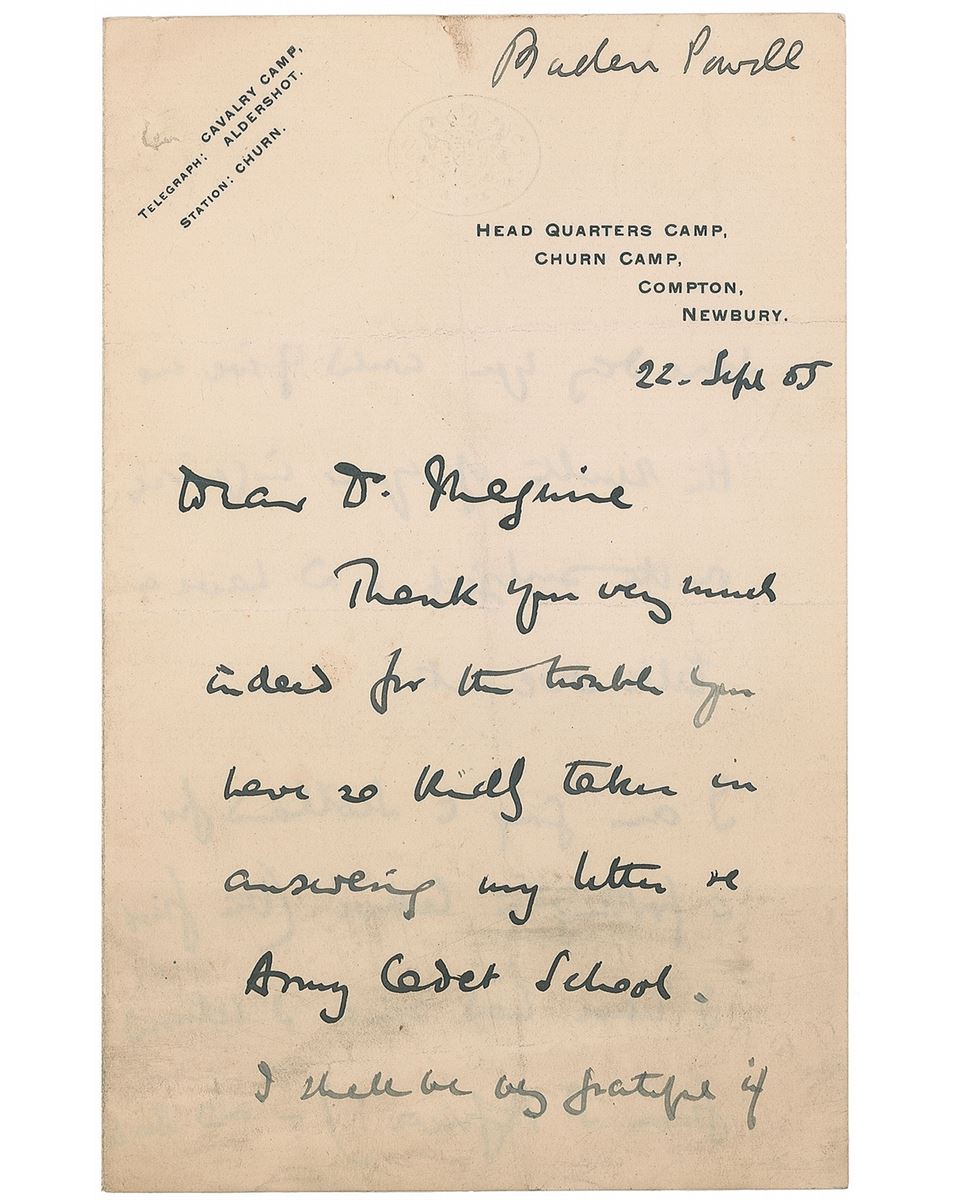 Baden Powell
TELEGRAPH: CAVALRY CAMP,
ALDERSHOT.
STATION: CHURN.
HEAD QUARTERS CAMP,
CHURN CAMP,
COMPTON,
NEWBURY.
22. Sept 05
Dear Dr. Maguire
Thank you very much
indeed for the trouble you
have so kindly taken in
answering my letter re
Army Cadet School.
I shall be very grateful if